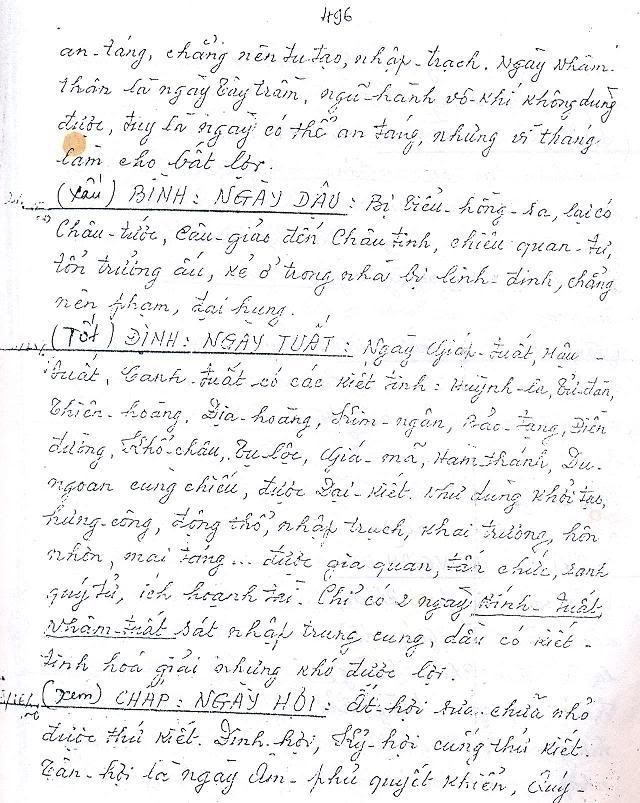 496
an-táng, chẳng nên tu tạo, nhập-trạch. Ngày Nhâm-
thân là ngày Tây trầm, ngũ-hành vô-khí không dùng
được, tuy là ngày có thể an táng, nhưng vì tháng
làm cho bất lợi.
(Xấu) BÌNH: NGÀY DẬU: Bị Tiểu-hồng-sa, lại có
Châu-tước, Câu-giảo đến Châu tinh, chiêu quan-tư,
tổn trưởng ấu, kẻ ở trong nhà bị linh-đinh, chẳng
nên phạm, đại hung.
(Tốt) ĐỊNH: NGÀY TUẤT: Ngày Giáp-tuất, Mậu-
tuất, Canh-tuất có các kiết tinh: Huỳnh-la, Tử-đàn,
Thiên-hoàng, Địa-hoàng, Kim-ngân, Bảo-tạng, Điền
đường, Khố-châu, Tụ-lộc, Giá-mã, Hàm thánh, Du-
ngoạn cùng chiếu, được Đại-kiết. Như dùng khởi tạo,
hưng-công, động thổ, nhập trạch, khai trương, hôn
nhơn, mai táng... được gia quan, tấn chức, sanh
quý tử, ích hoạnh tài. Chỉ có 2 ngày Bính-tuất
Nhâm-tuất sát nhập trung cung, dầu có kiết-
tinh hoá giải nhưng khó được lợi.
(Xem) CHẤP: NGÀY HỢI: Ất-hợi sửa chữa nhỏ
được thứ kiết. Đinh-hợi, Kỷ-hợi cũng thứ kiết.
Tân-hợi là ngày Âm-phủ quyết khiển, Quý-